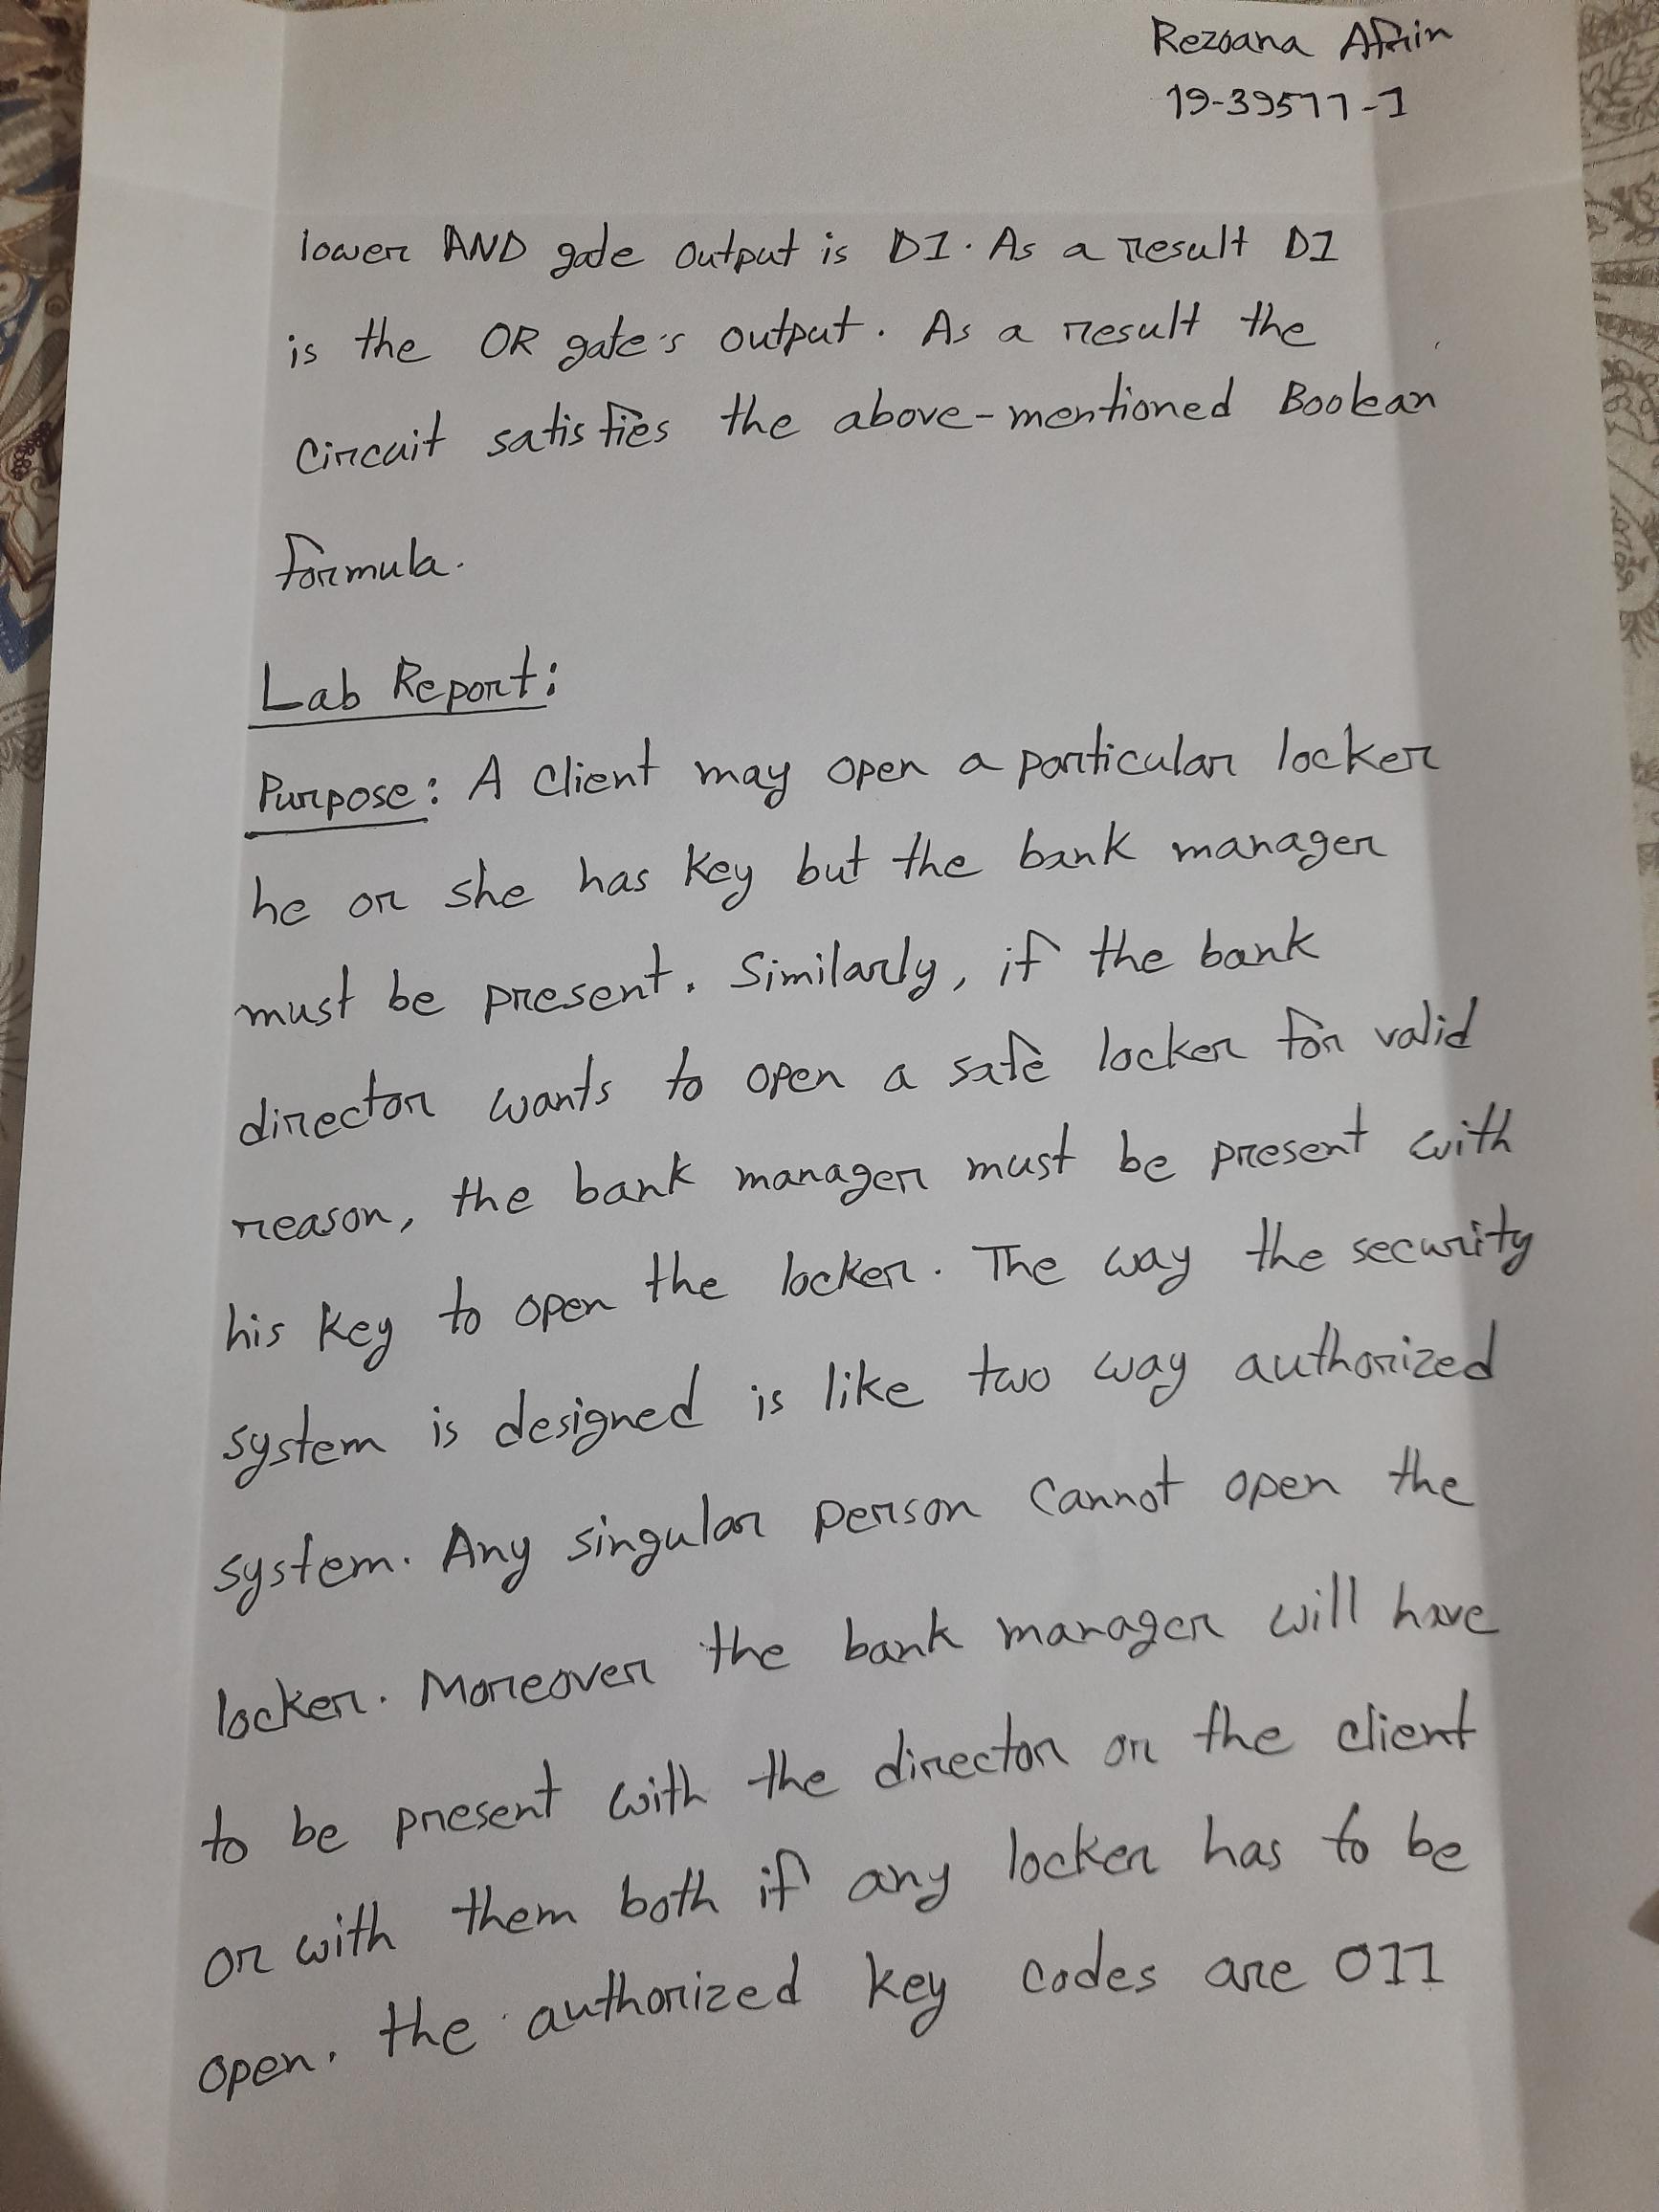 Rezoana Afrin
19-39511-1
lower AND gate output is D1. As a result D1
is the OR gate's output. As a result the
Circuit satisfies the above-mentioned Boolean
formula.
Lab Report:
Purpose: A Client may open a particular locker
he or she has key but the bank manager
must be present. Similarly, if the bank
director wants to open a safe locker for valid
reason, the bank manager must be present with
his key to open the locker. The way the security
system is designed is like two way authorized
system. Any singular person cannot open the
locker. Moreover the bank manager will have
to be present with the director or the client
or with them both if any locker has to be
open. the authorized key codes are 011